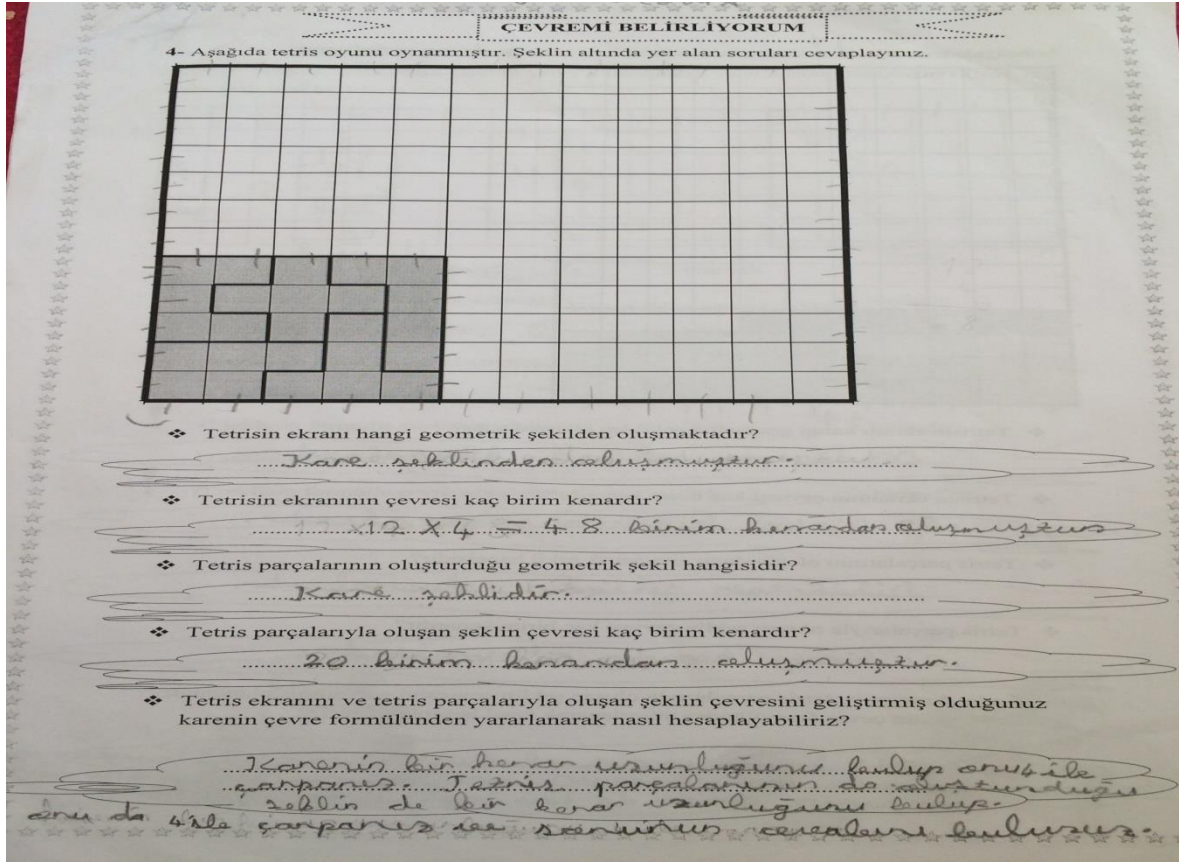 ÇEVREMİ BELİRLİYORUM
4- Aşağıda tetris oyunu oynanmıştır. Şeklin altında yer alan soruları cevaplayınız.
❖ Tetrisin ekranı hangi geometrik şekilden oluşmaktadır?
Kare şeklinden oluşmuştur.
❖ Tetrisin ekranının çevresi kaç birim kenardır?
12 X 4 = 48 birim kenardan oluşmuştur
❖ Tetris parçalarının oluşturduğu geometrik şekil hangisidir?
Kare şeklidir.
❖ Tetris parçalarıyla oluşan şeklin çevresi kaç birim kenardır?
20 birim kenardan oluşmuştur.
❖ Tetris ekranını ve tetris parçalarıyla oluşan şeklin çevresini geliştirmiş olduğunuz
karenin çevre formülünden yararlanarak nasıl hesaplayabiliriz?
Karenin bir kenar uzunluğunu bulup onu 4 ile
çarparız. Tetris parçalarının da oluşturduğu
şeklin de bir kenar uzunluğunu bulup.
onu da 4 ile çarparız ve sorunun buluruz.